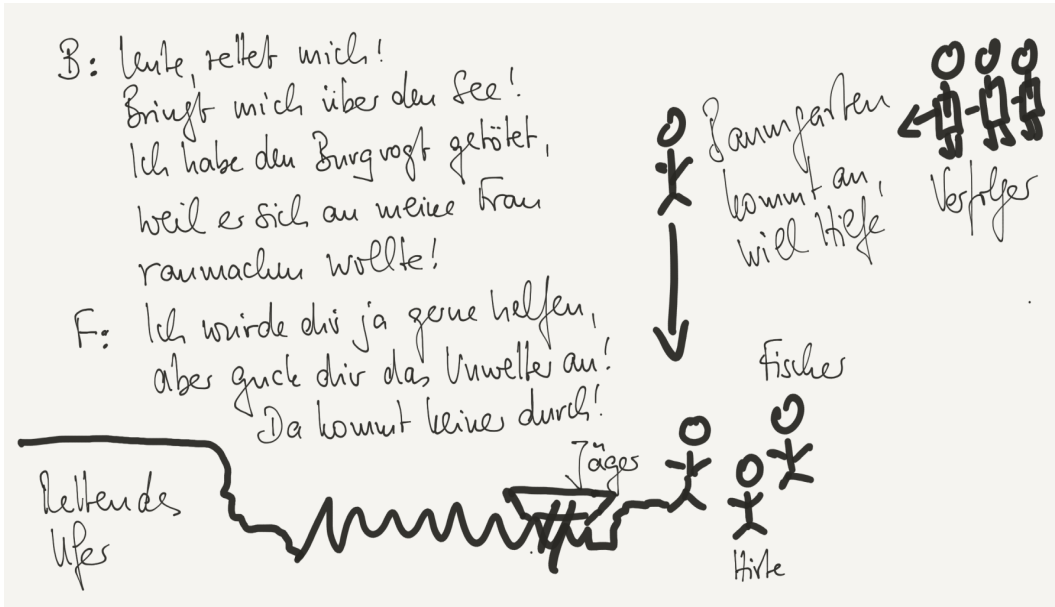 B: Leute, rettet mich!
Bringt mich über den See!
Ich habe den Burgvogt getötet,
weil er sich an meine Frau
ranmachen wollte!
F: Ich würde dir ja gerne helfen,
aber guck dir das Unwetter an!
Da kommt keiner durch!
Baumgarten
kommt an,
will Hilfe
Verfolger
Fischer
Jäger
Hirte
Rettendes
Ufer